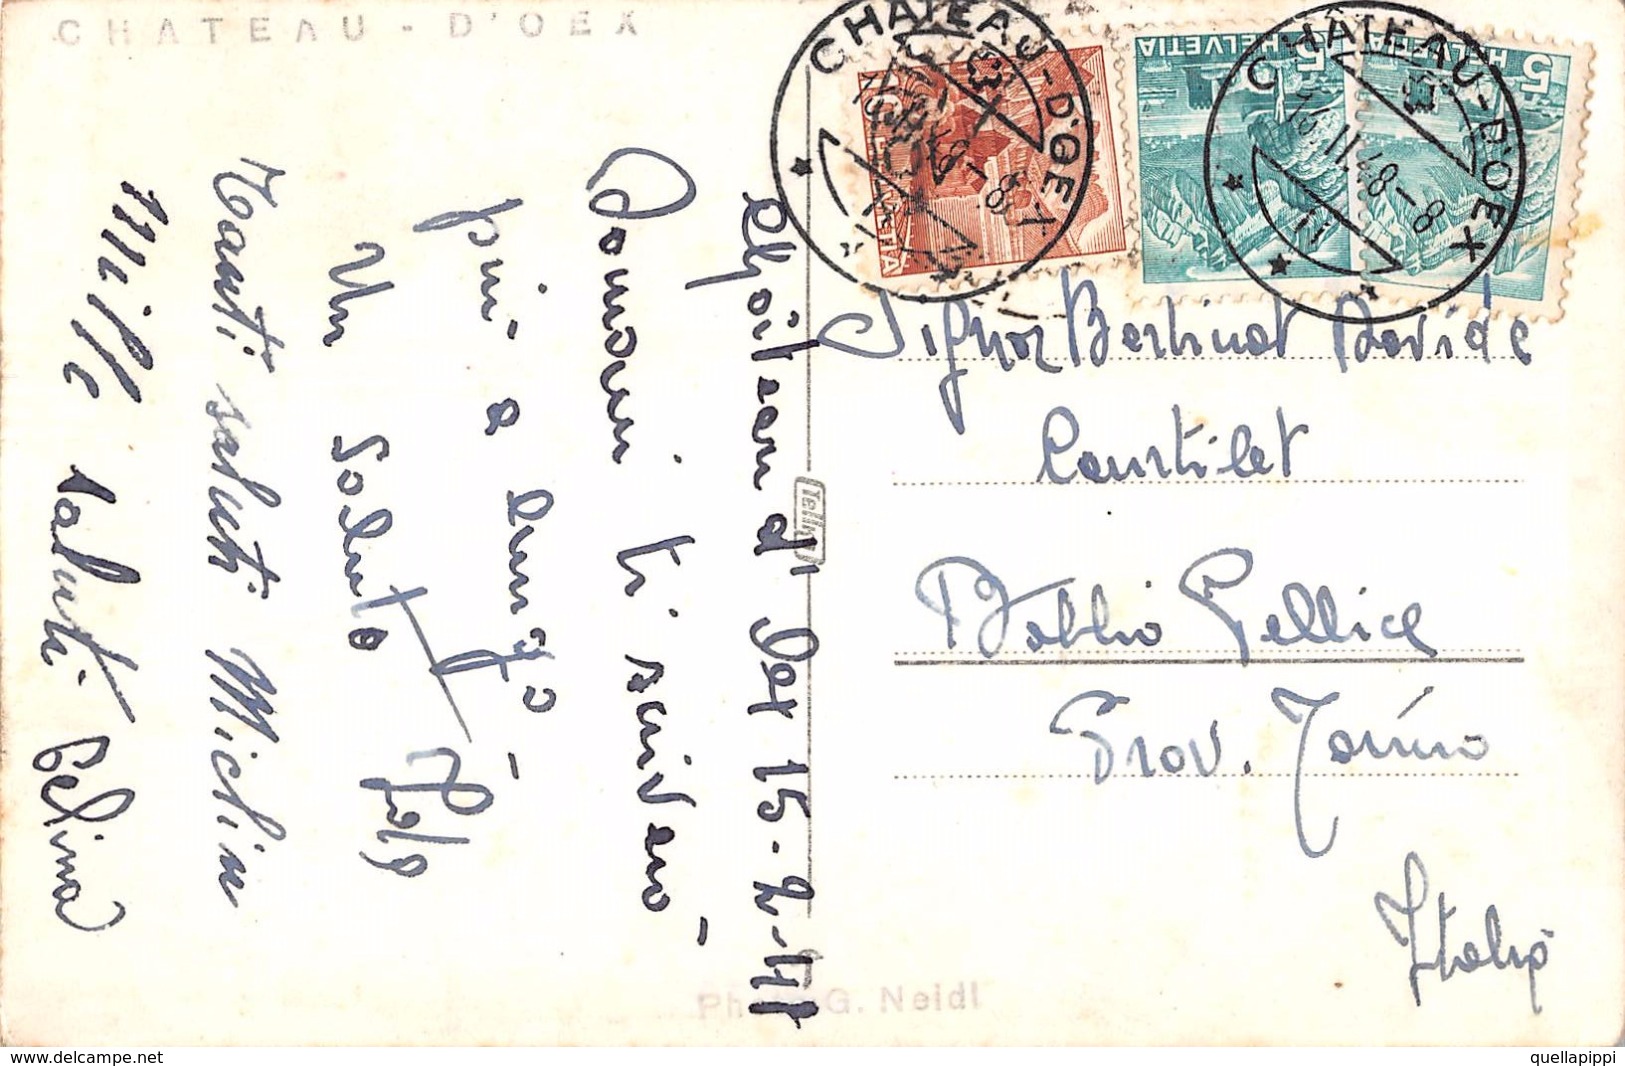 CHATEAU - D'OEX
CHATEAU-D'OEX
16.II.48-8
HELVETIA
5
HELVETIA
5
HELVETIA
Château d' Oex 15-2-48
Domani ti scriverò
più a lungo -
Un saluto
Tanti saluti Michelin
Mille saluti Celina
Signor Bertinat Davide
Coustilet
Bobbio Pellice
Prov. Torino
Italia
Photo G. Neidl
www.delcampe.net
quellapippi